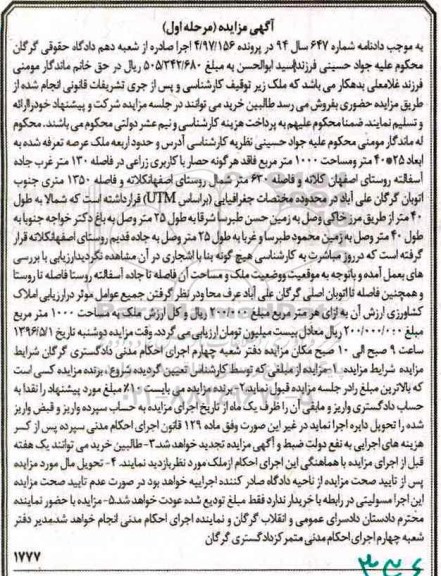 آگهی مزایده (مرحله اول)
به موجب دادنامه شماره ۶۴۷ سال ۹۴ در پرونده ۴/۹۷/۱۵۶ اجرا صادره از شعبه دهم دادگاه حقوقی گرگان
محکوم علیه جواد حسینی فرزند سید ابوالحسن به مبلغ ۵۰۵/۲۴۲/۶۸۰ ریال در حق خانم ماندگار مومنی
فرزند غلامعلی بدهکار می باشد که ملک زیر توقیف کارشناسی و پس از جری تشریفات قانونی انجام شده از
طریق مزایده حضوری بفروش می رسد طالبین خرید می توانند در جلسه مزایده شرکت و پیشنهاد خود را ارائه
و تسلیم نمایند. ضمنا محکوم علیهم به پرداخت هزینه کارشناسی و نیم عشر دولتی محکوم می باشند. محکوم
له ماندگار مومنی محکوم علیه جواد حسینی نظریه کارشناسی آدرس و حدود اربعه ملک عرصه تعرفه شده به
ابعاد ۲۵*۴۰ متر ومساحت ۱۰۰۰ متر مربع فاقد هر گونه حصار با کاربری زراعی در فاصله ۱۳۰ متر غرب جاده
آسفالته روستای اصفهان کلاته و فاصله ۶۳۰ متر شمال روستای اصفهانکلاته و فاصله ۱۳۵۰ متری جنوب
اتوبان گرگان علی آباد در محدوده مختصات جغرافیایی (براساس UTM) قرار داشته است که شمالا به طول
۴۰ متر از طریق مرز خاکی وصل به زمین حسن طبرسا شرقا به طول ۲۵ متر وصل به باغ دکتر خواجه جنوبا به
طول ۴۰ متر وصل به زمین محمود طبرسا و غربا به طول ۲۵ متر وصل به جاده قدیم روستای اصفهانکلاته قرار
گرفته است که در روز مباشرت به کارشناسی هیچ گونه بنا یا اشجاری در آن مشاهده نگردید ارزیابی با بررسی
های بعمل آمده و باتوجه به موقعیت وضعیت ملک و مساحت آن فاصله تا جاده آسفالته روستا فاصله تا روستا
و همچنین فاصله تا اتوبان اصلی گرگان علی آباد عرف محل و در نظر گرفتن جمیع عوامل موثر در ارزیابی املاک
کشاورزی ارزش آن به ازای هر متر مربع مبلغ ۲۰۰/۰۰۰ ریال و کل ارزش ملک به مساحت ۱۰۰۰ متر مربع
مبلغ ۲۰۰/۰۰۰/۰۰۰ ریال معادل بیست میلیون تومان ارزیابی می گردد. وقت مزایده دوشنبه تاریخ ۱۳۹۶/۵/۱
ساعت ۹ صبح الی ۱۰ صبح مکان مزایده دفتر شعبه چهارم اجرای احکام مدنی دادگستری گرگان شرایط
مزایده شرایط مزایده ۱- مزایده از مبلغی که توسط کارشناسان تعیین گردیده شروع و برنده مزایده کسی است
که بالاترین مبلغ را در جلسه مزایده قبول نماید ۲- برنده مزایده می بایست ۱۰٪ مبلغ مورد پیشنهاد را نقدا به
حساب دادگستری واریز و مابقی آن را ظرف یک ماه از تاریخ اجرای مزایده به حساب سپرده واریز و قبض واریز
شده را تحویل دایره اجرا نماید در غیر این صورت وفق ماده ۱۲۹ قانون اجرای احکام مدنی سپرده پس از کسر
هزینه های اجرایی به نفع دولت ضبط و آگهی مزایده تجدید خواهد شد. ۳- طالبین خرید می توانند یک هفته
قبل از اجرای مزایده با هماهنگی این اجرای احکام از ملک مورد بازدید نمایند. ۴- تحویل مال مورد مزایده
پس از تایید صحت مزایده از ناحیه دادگاه صادر کننده اجراییه خواهد بود در صورت عدم تایید صحت مزایده
این اجرا مسولیتی در رابطه با خریدار ندارد فقط مبلغ تودیع شده عودت خواهد شد. ۵- مزایده با حضور نماینده
محترم دادستان دادسرای عمومی و انقلاب گرگان و نماینده اجرای احکام مدنی انجام خواهد شد. مدیر دفتر
شعبه چهارم اجرای احکام مدنی متمرکز دادگستری گرگان
۱۷۷۷